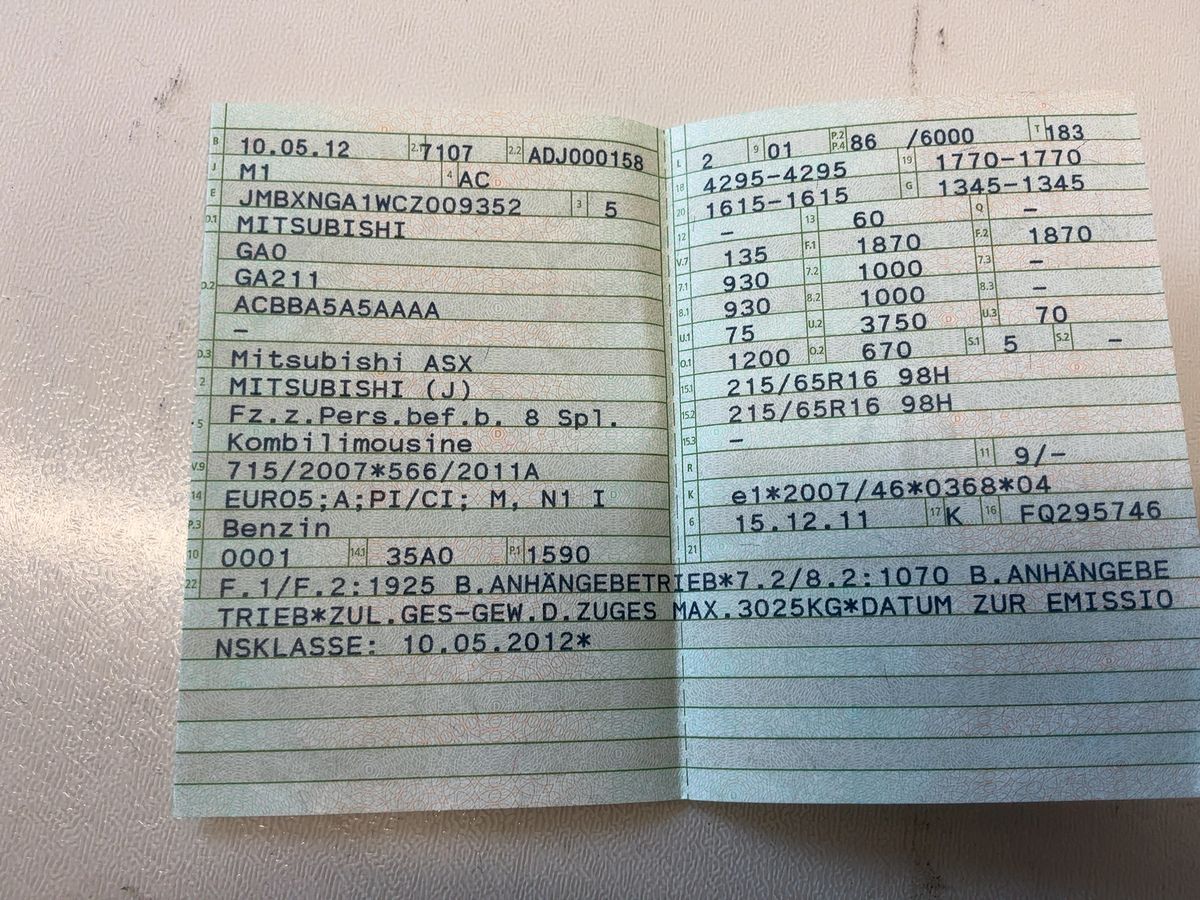 B 10.05.12 2.1 7107 2.2 ADJ000158
J M1 4 AC
E JMBXNGA1WCZ009352 3 5
D.1 MITSUBISHI
GA0
D.2 GA211
ACBBA5A5AAAA
–
D.3 Mitsubishi ASX
2 MITSUBISHI (J)
5 Fz.z.Pers.bef.b. 8 Spl.
Kombilimousine
V.9 715/2007*566/2011A
14 EURO5;A;PI/CI; M, N1 I
P.3 Benzin
10 0001 14.1 35A0 P.1 1590
L 2 9 01 P.2 P.4 86 /6000 T 183
18 4295-4295 19 1770-1770
20 1615-1615 G 1345-1345
12 – 13 60 Q –
V.7 135 F.1 1870 F.2 1870
7.1 930 7.2 1000 7.3 –
8.1 930 8.2 1000 8.3 –
U.1 75 U.2 3750 U.3 70
O.1 1200 O.2 670 S.1 5 S.2 –
15.1 215/65R16 98H
15.2 215/65R16 98H
15.3 –
R 11 9/-
K e1*2007/46*0368*04
6 15.12.11 17 K 16 FQ295746
21
22 F.1/F.2:1925 B.ANHÄNGEBETRIEB*7.2/8.2:1070 B.ANHÄNGEBE
TRIEB*ZUL.GES-GEW.D.ZUGES MAX.3025KG*DATUM ZUR EMISSIO
NSKLASSE: 10.05.2012*